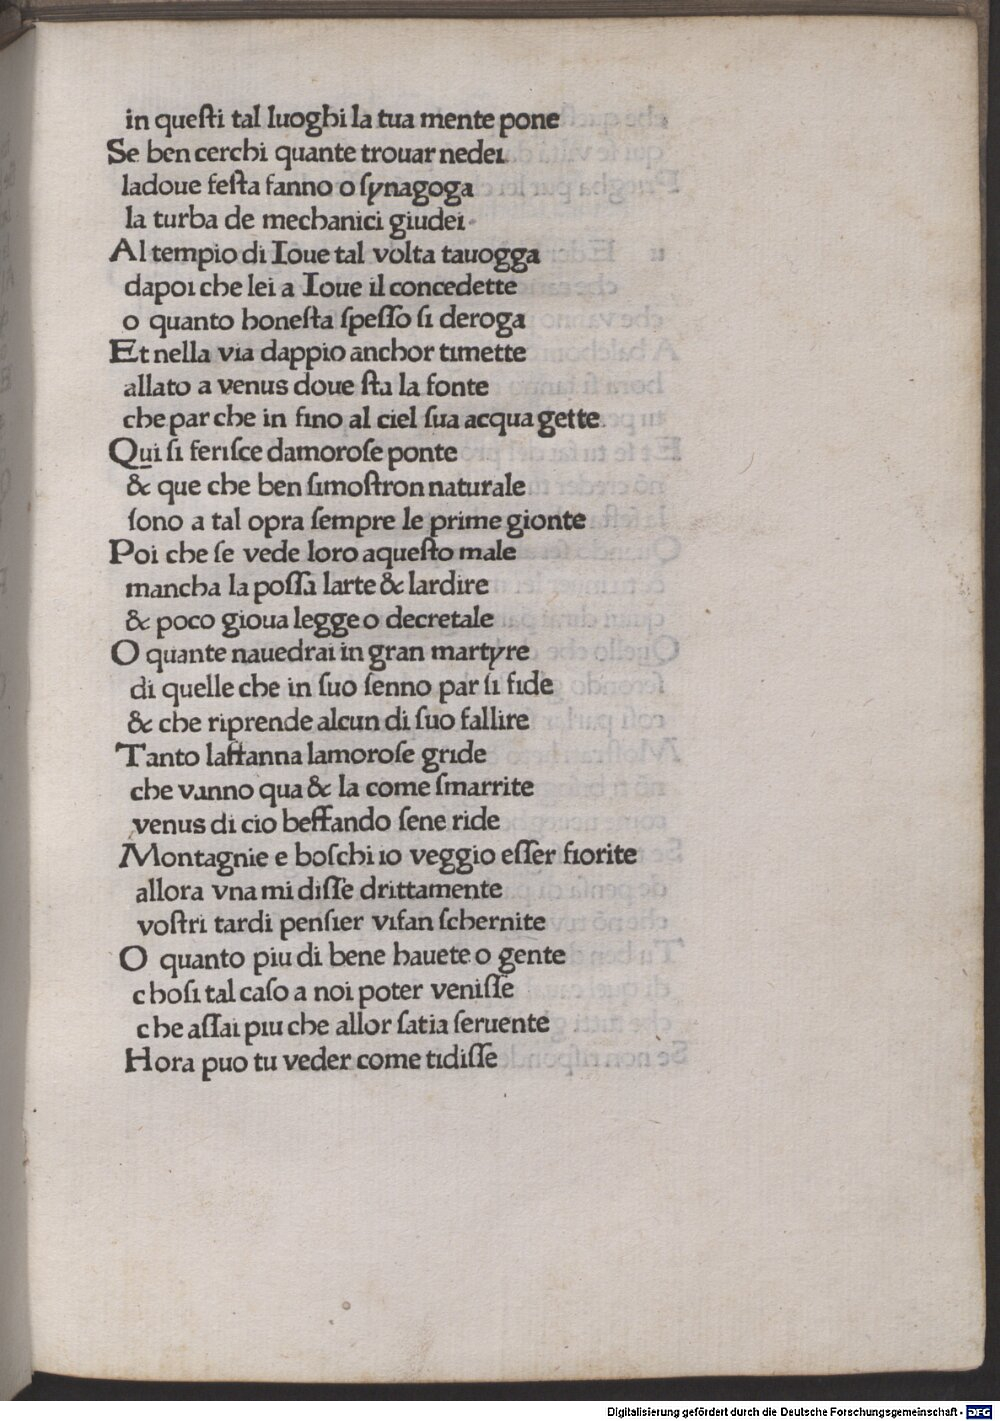 in queſti tal luoghi la tua mente pone
Se ben cerchi quante trouar nedei
ladoue feſta fanno o ſynagoga
la turba de mechanici giudei
Al tempio di Ioue tal volta tauogga
dapoi che lei a Ioue il concedette
o quanto honeſta ſpeſſo ſi deroga
Et nella via dappio anchor timette
allato a venus doue ſta la fonte
che par che in fino al ciel ſua acqua gette
Qui ſi feriſce damoroſe ponte
& que che ben ſimoſtron naturale
ſono a tal opra ſempre le prime gionte
Poi che ſe vede loro aqueſto male
mancha la poſſa larte & lardire
& poco gioua legge o decretale
O quante nauedrai in gran martyre
di quelle che in ſuo ſenno par ſi fide
& che riprende alcun di ſuo fallire
Tanto laffanna lamoroſe gride
che vanno qua & la come ſmarrite
venus di cio beffando ſene ride
Montagnie e boſchi io veggio eſſer fiorite
allora vna mi diſſe drittamente
voſtri tardi penſier viſan ſchernite
O quanto piu di bene hauete o gente
choſi tal caſo a noi poter veniſſe
che aſſai piu che allor ſatia ſeruente
Hora puo tu veder come tidiſſe
Digitalisierung gefördert durch die Deutsche Forschungsgemeinschaft - DFG